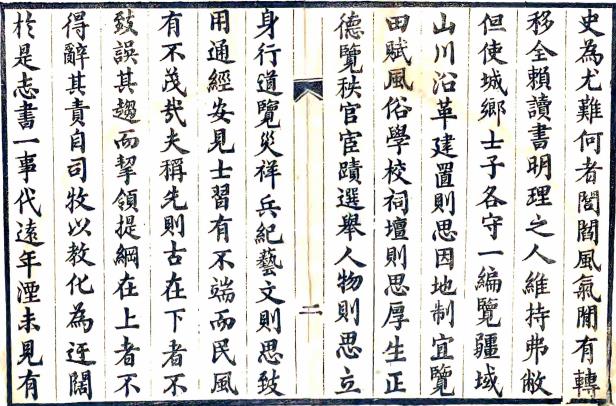 史為尤難何者閭閻風氣間有轉
移全賴讀書明理之人維持弗敝
但使城鄉士子各守一編覽疆域
山川沿革建置則思因地制宜覽
田賦風俗學校祠壇則思厚生正
德覽秩官宦蹟選舉人物則思立
二
身行道覽災祥兵紀藝文則思致
用通經安見士習有不端而民風
有不茂哉夫稱先則古在下者不
致誤其趨而挈領提綱在上者不
得辭其責自司牧以教化為迂闊
於是志書一事代遠年湮未見有